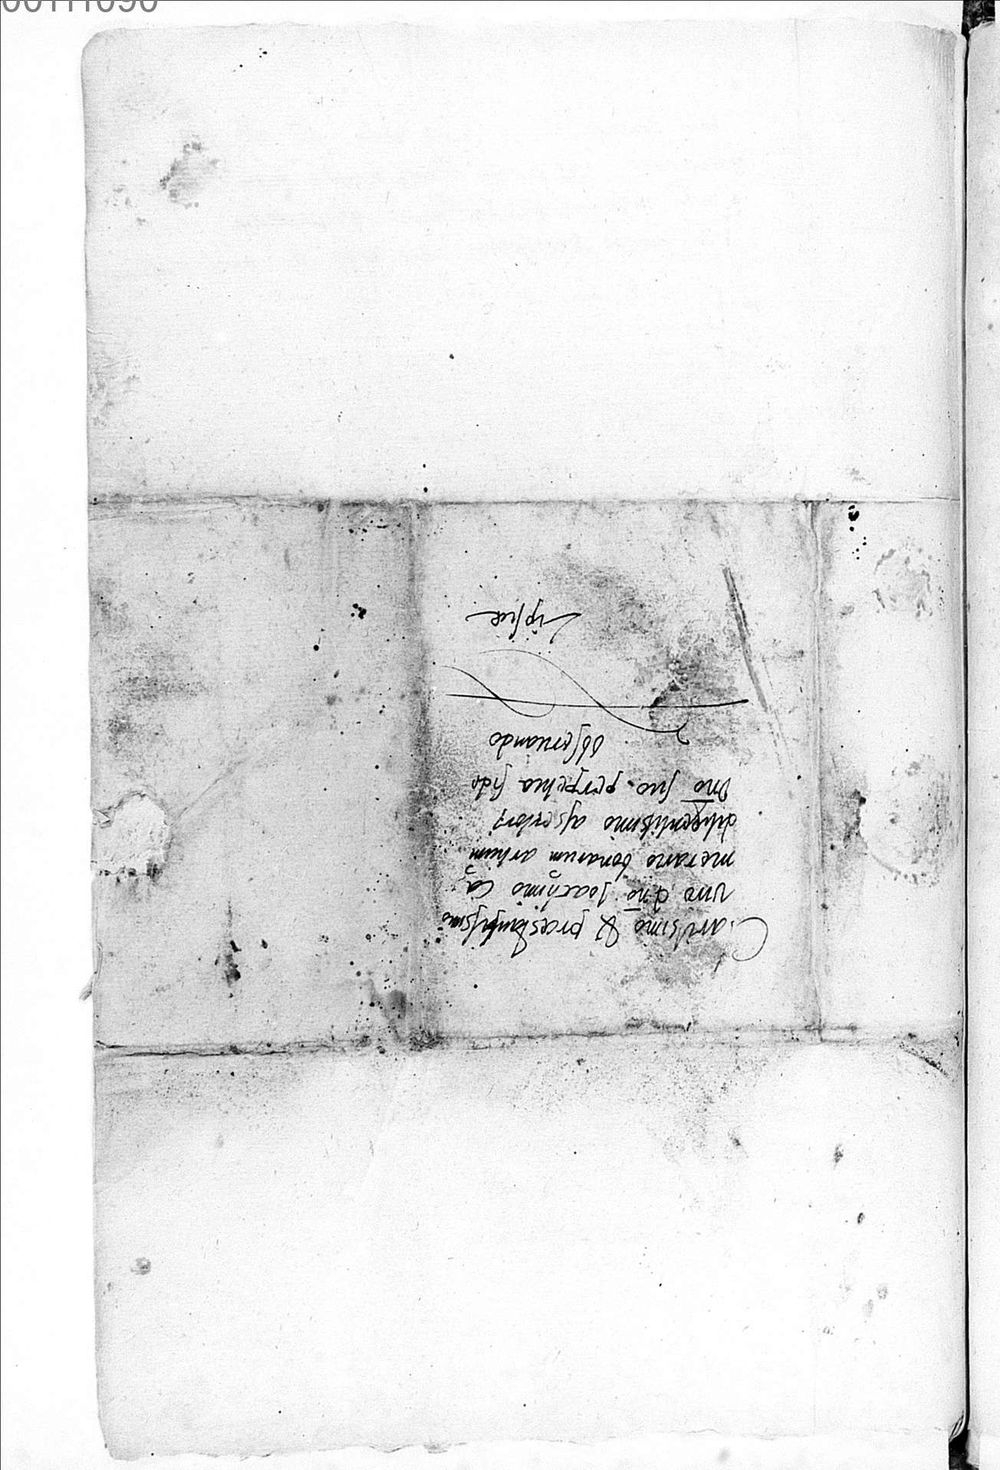 Clarissimo & praestantissimo
viro dno Joachimo Ca
merario bonarum artium
diligentissimo assertori
Dno suo perpetua fide
observando
Lipsiae